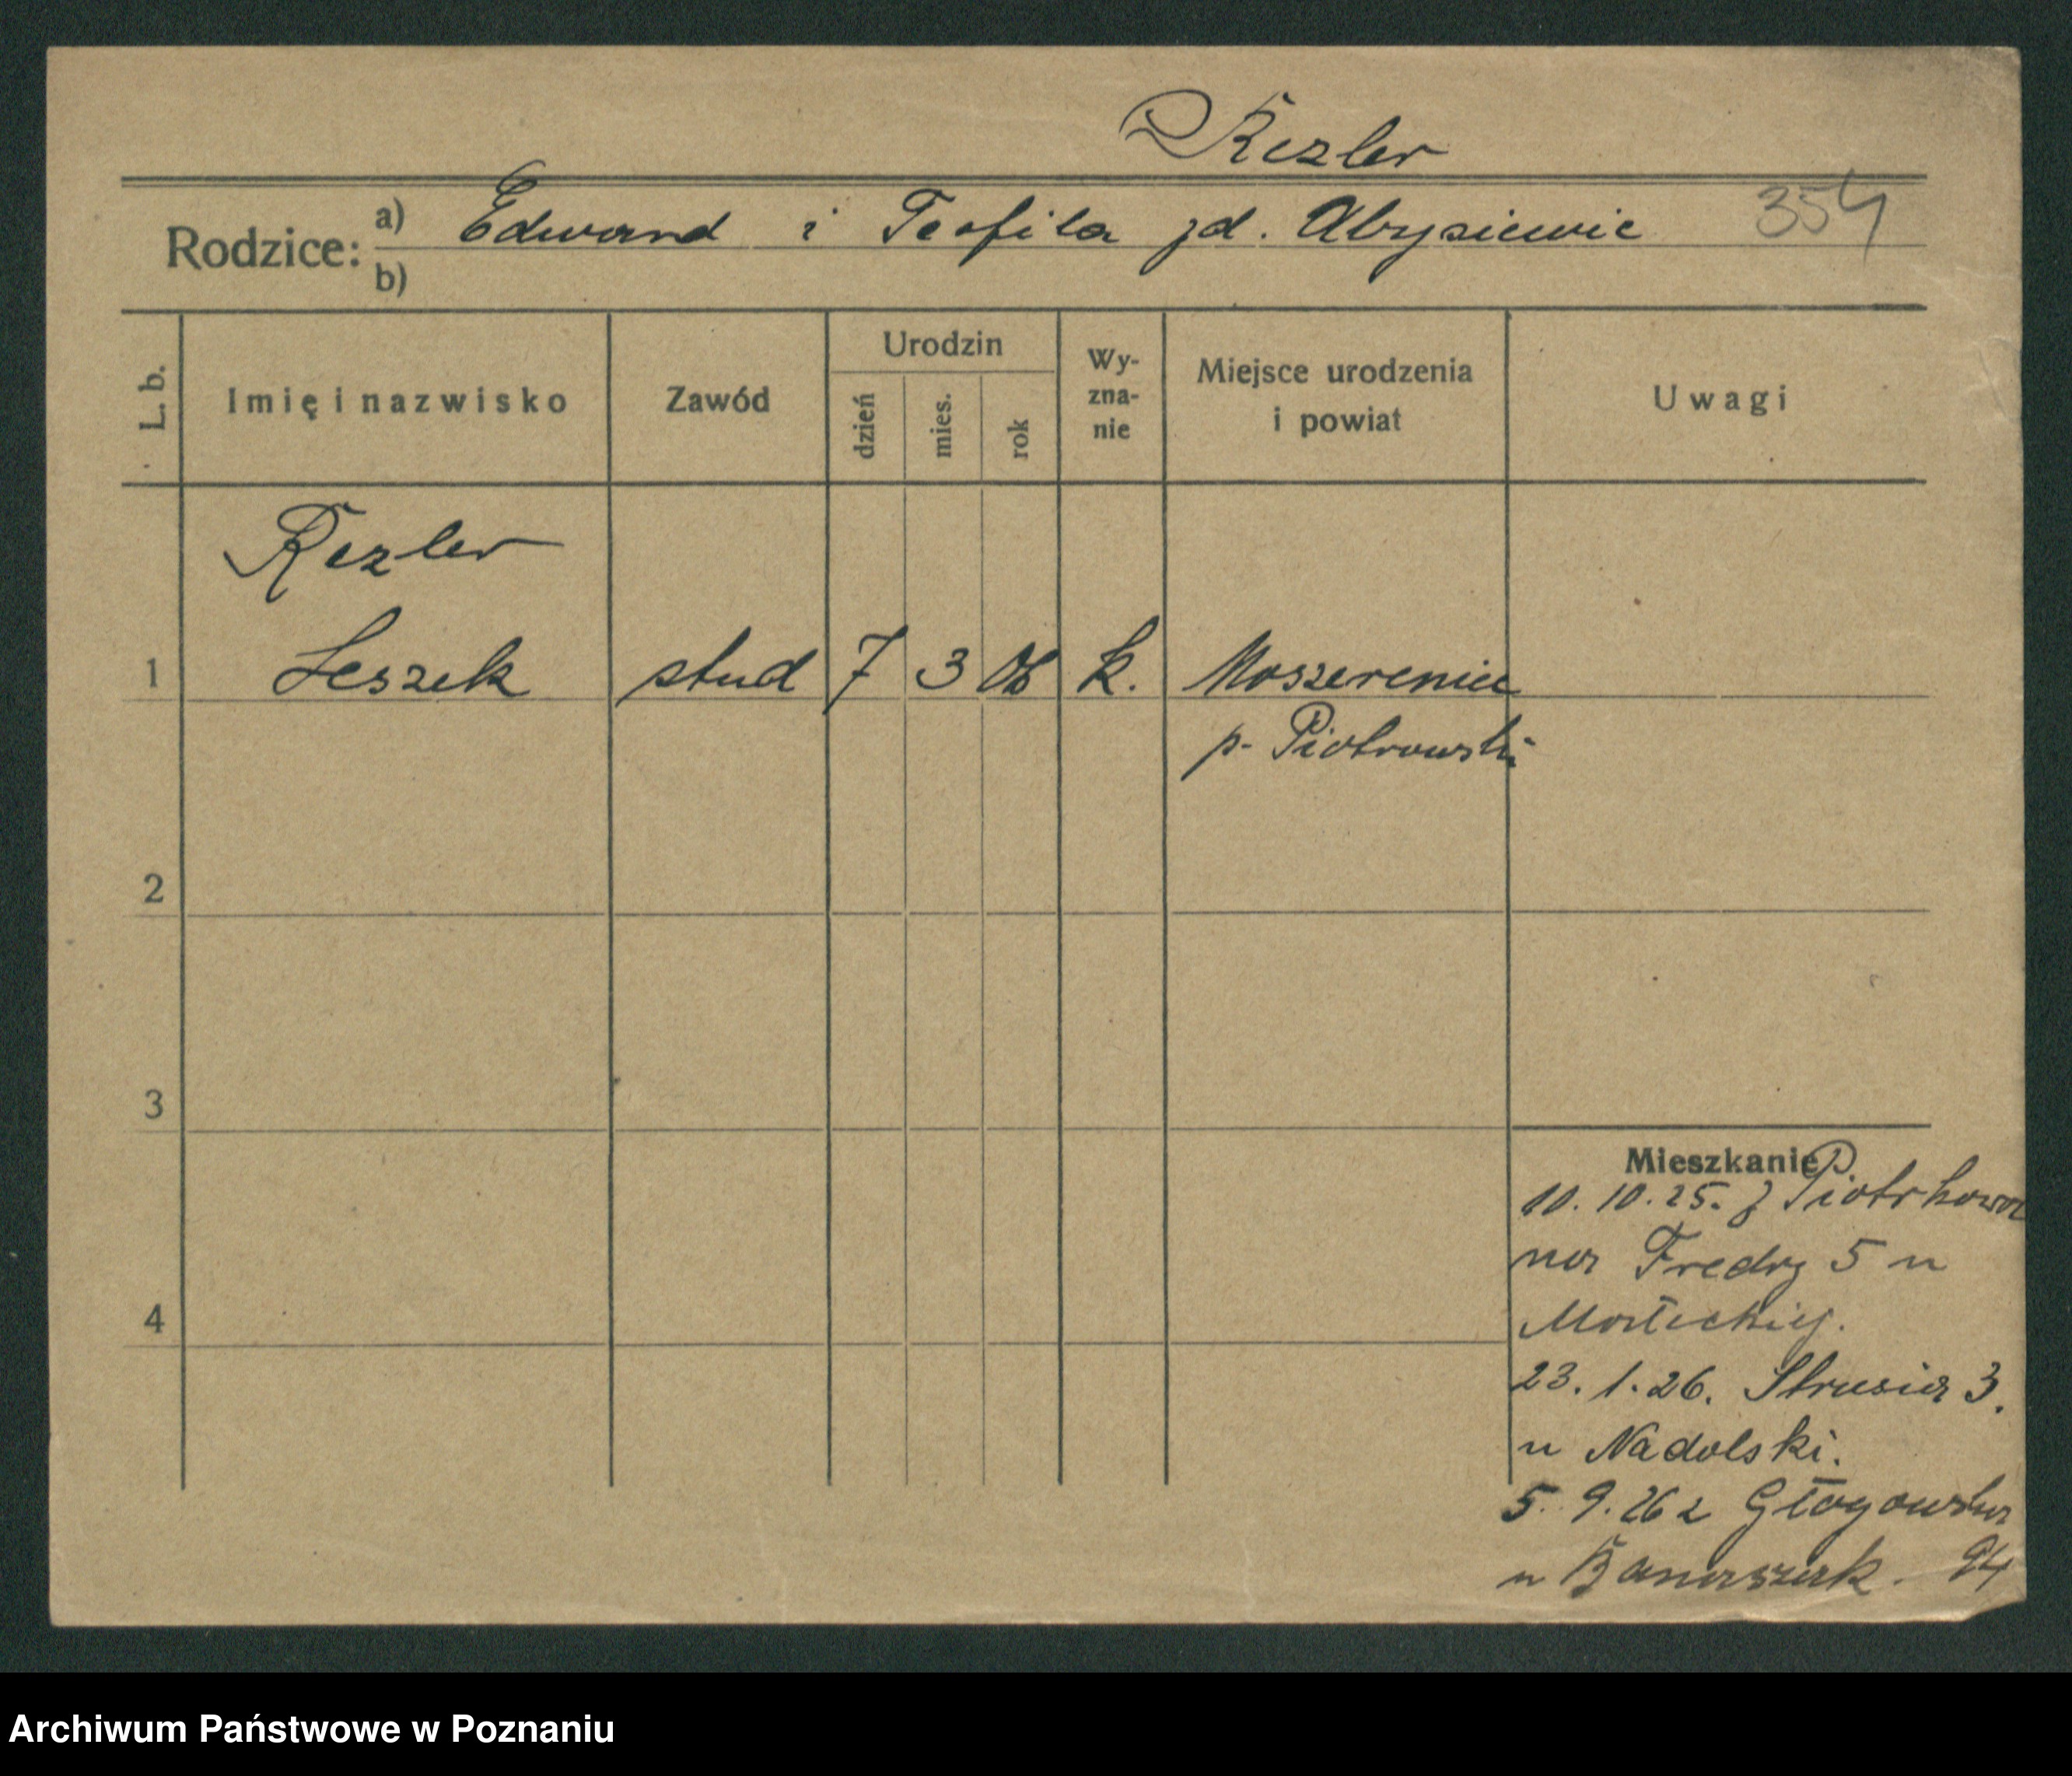 Rezler
Rodzice: a) Edward i Teofila zd. Abrysiewic 354
b)
L. b. Imię i nazwisko Zawód Urodzin dzień mies. rok Wy- zna- nie Miejsce urodzenia i powiat Uwagi
Rezler
1 Leszek stud 7 3 06 k. Moszczenice
p. Piotrowski
2
3
Mieszkanie
10. 10. 25. z Piotrkowa
na Fredry 5 u
4
23. 1. 26. Strusia 3.
u Nadolski.
5. 9. 26 z Głogowska
u Banaszak. 94
Archiwum Państwowe w Poznaniu